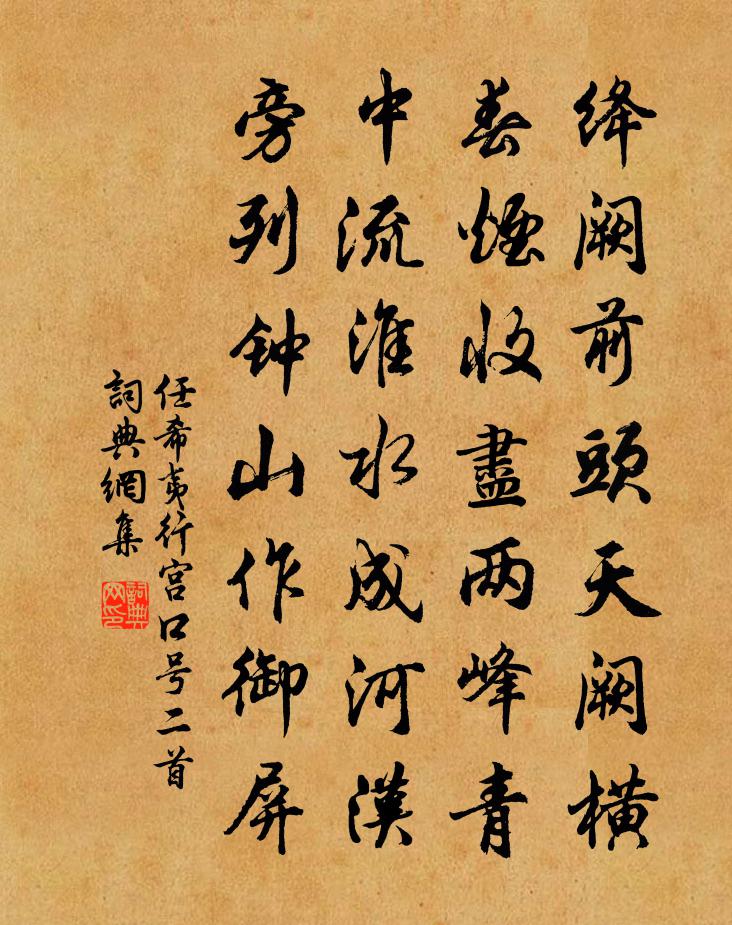 绛阙前頭天阙橫
春煙收盡两峰青
中流淮水成河漢
旁列钟山作御屏
任希夷行宫口号二首
詞典網集
詞典网印